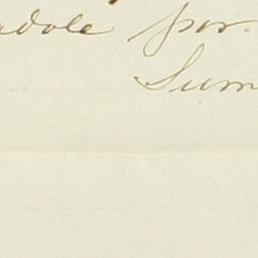 adole por
Sum